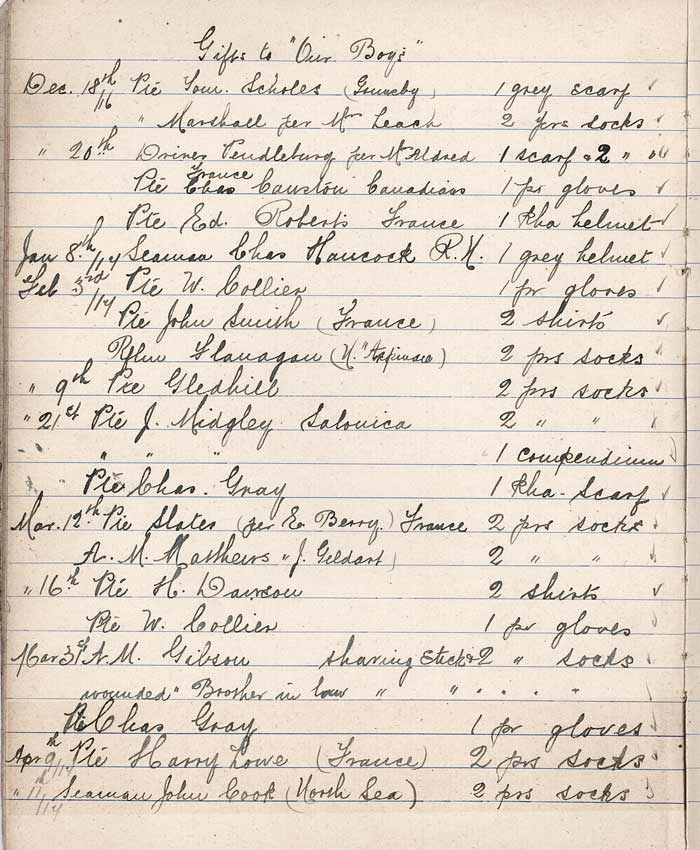 Gifts to "Our Boys"
Dec. 18th/16 Pte Tom. Scholes (Grimsby) 1 grey scarf
" Marshall per Mrs Leach 2 prs socks
" 20th Driver Pendlebury per Mr Aldred 1 scarf & 2 " "
France
Pte Chas Causton Canadians 1 pr gloves
Pte Ed. Roberts France 1 kha helmet
Jan 8th/17 Seaman Chas Hancock R.N. 1 grey helmet
Feb 3rd/17 Pte W. Collier 1 pr gloves
Pte John Smith (France) 2 shirts
Rflm Flanagan 2 prs socks
" 9th Pte Gledhill 2 prs socks
" 21st Pte J. Midgley Salonica 2 " "
" " " 1 compendium
Pte Chas. Gray 1 kha. scarf
Mar. 12th Pte Slater (per E. Berry.) France 2 prs socks
A. M. Mathews " J. Gildart) 2 " "
" 16th Pte H. Dawson 2 shirts
Pte W. Collier 1 pr gloves
Mar 31st A.M. Gibson shaving stick & 2 " socks
wounded " Brother in law " " " " "
Pte Chas Gray 1 pr gloves
Apr 9th/17 Pte Harry Lowe (France) 2 prs socks
" 11th/17 Seaman John Cook (North Sea) 2 prs socks